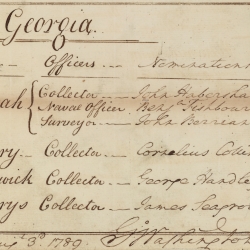 Georgia.
Officers — Nominations
ah { Collector — John Habersha
Naval Officer Benjn Fishbour
Surveyor — John Berrian
ry — Collector — Cornelius Col
wick Collector — George Handle
rys Collector — James Seagrov
3d 1789. GWashington